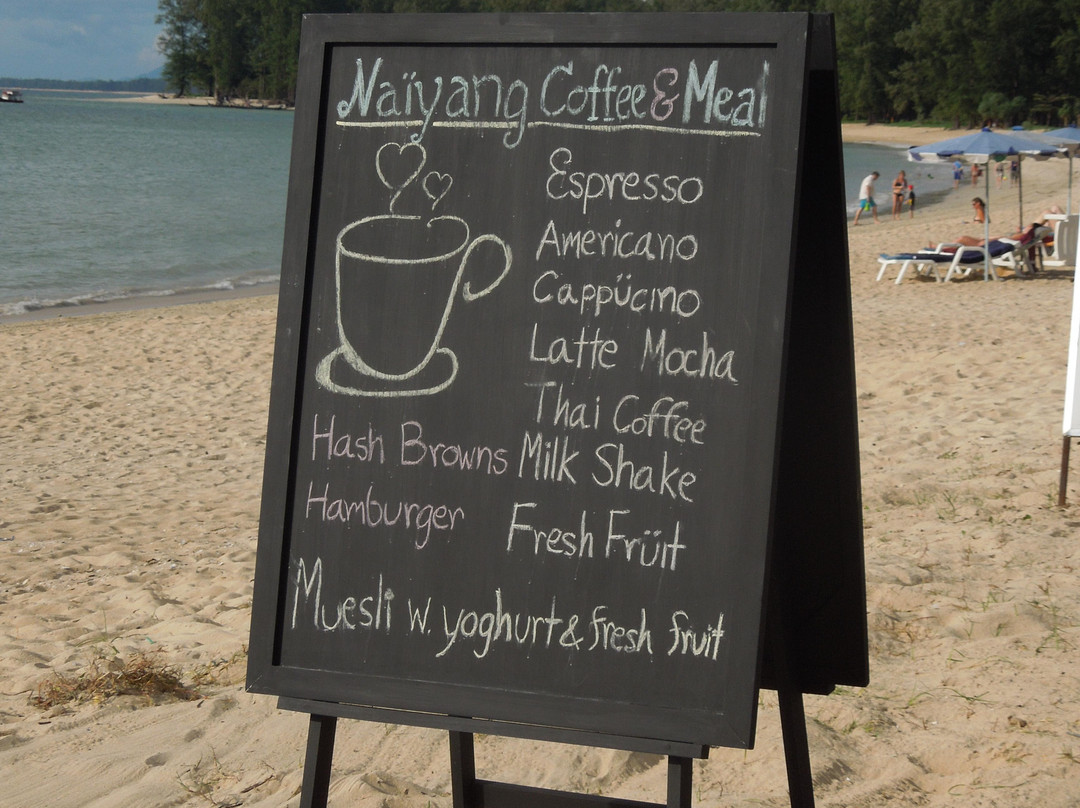 Naïyang Coffee & Meal
Espresso
Americano
Cappücino
Latte Mocha
Thai Coffee
Hash Browns Milk Shake
Hamburger
Fresh Früit
Muesli w. yoghurt & fresh fruit